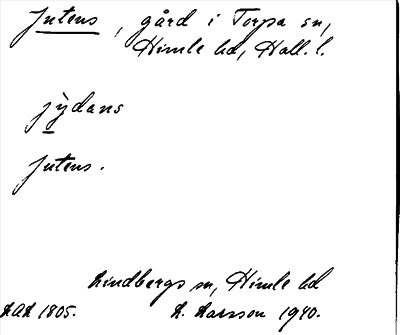 Jutens, gård i Torpa sn,
Himle hd, Hall. l.
jỳdans
Jutens.
Lindbergs sn, Himle hd
LAL 1805. L. Larsson 1940.